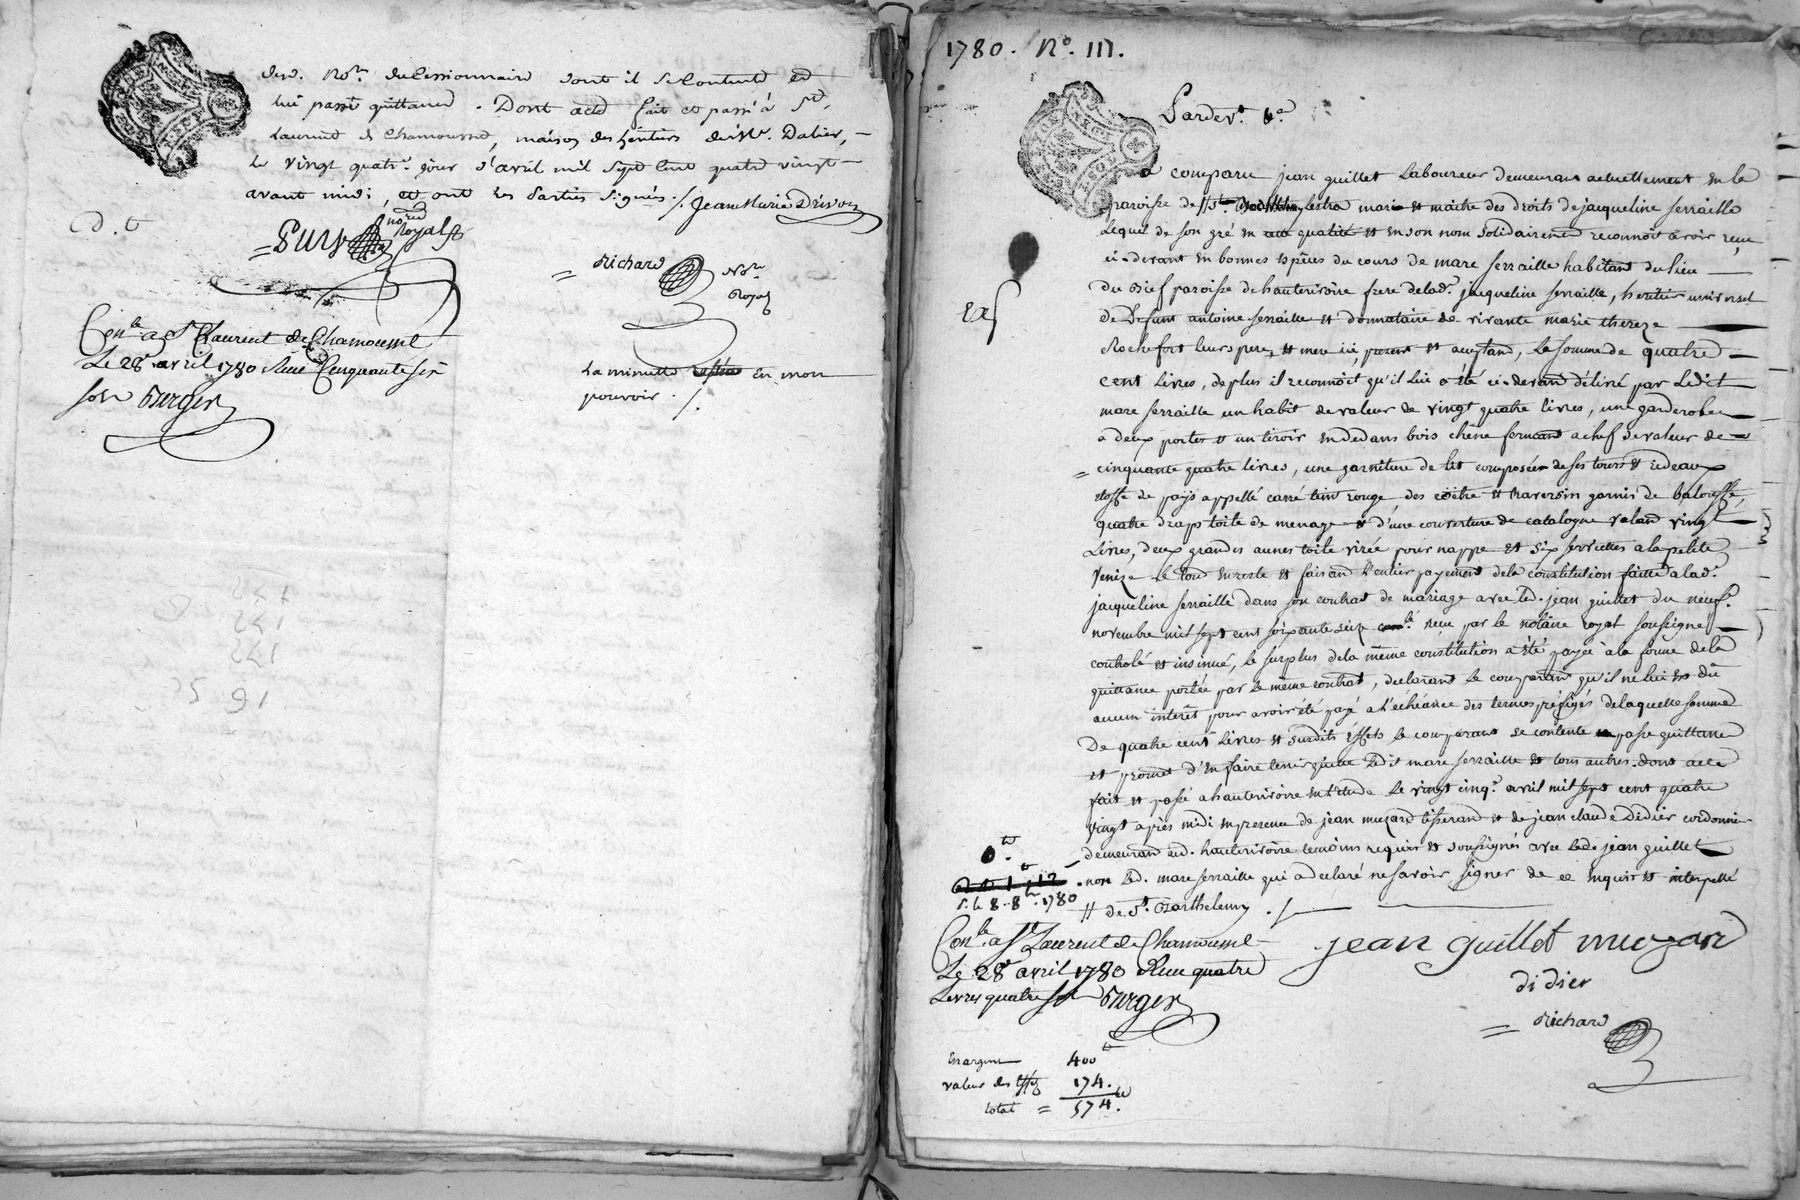 dud. No.re du Cessionnaire dont il se Contente et
lui passe quittance. Dont acte fait et passé à St.
Laurent de Chamousset, maison des héritiers de Me. Dalier,
le vingt quatr.e jour d'avril mil Sept Cent quatre vingt
avant midi, et ont les Parties Signés ./. Jean Marie Drivon
Cd. t
= Pury no.re Royal
= Richard No.re Royal
Con.lé a St Laurent de Chamousset
Le 28 avril 1780 Reçu Cinquante six
sols Burger
La minutte restée en mon
pouvoir ./.
1780. No. 111.
Pardev.t le
a comparu jean guillet Laboureur demeurant actuellement en la
paroisse de // St. Lestra mari et maitre des droits de jacqueline serraille
Lequel de son gré en cette qualité et en son nom solidairement reconnoit avoir reçu
ci-devant en bonnes espèces du cours de marc serraille habitant du lieu
du Bief paroisse de hauterivoire frere de lad.e jacqueline serraille, heritier universel
de Defunt antoine serraille et donnataire de vivante marie thereze
Rochefort leurs pere et mere ici present et acceptant, la somme de quatre
cent Livres, de plus il reconnoit qu'il lui a été ci-devant délivré par Ledit
marc serraille un habit de valeur de vingt quatre livres, une garderobe
a deux portes et un tiroir en dedans bois chêne fermant a clef de valeur de
= cinquante quatre livres, une garniture de lit composée de ses tours et rideaux
etoffe de pays appellé carré teint rouge des coître et traversin garnis de balouffe,
quatre draps toile de menage et d'une couverture de catalogne valant vingt
Livres, deux grandes aunes toile virée pour nappe et six serviettes a la petite
Venize le tout en reste et faisant l'entier payement de la constitution faitte a lad.e
jacqueline serraille dans son contrat de mariage avec led. jean guillet du neuf.e
novembre mil sept cent soixante seize reçu par le notaire royal soussigné
controlé et insinué, le surplus de la même constitution a été payée a la forme de la
quittance portée par le même contrat, declarant le comparant qu'il ne lui est dû
aucun interêt pour avoir été payé a l'échéance des termes préfigés de laquelle somme
De quatre cent Livres et susdits éffets le comparant se contente passe quittance
et promet d'en faire tenir quitte ledit marc serraille et tous autres. dont acte
fait et passé a hauterivoire en l'etude le vingt cinq.e avril mil sept cent quatre
vingt après midi en presence de jean muzard tisserand et de jean claude Didier cordonnier
demeurant aud. hauterivoire temoins requis et soussignés avec led. jean guillet
non led. marc serraille qui a declaré ne savoir signer de ce enquis et interpellé
// de St. Barthelemy ./.
Ex.
s. le 8. 8.bre 1780
Con.lé a St Laurent de Chamousset
Le 28 avril 1780 Reçu quatre
Livres quatre sols Burger
jean guillet muzard
didier
= Richard
En argent 400 tt
valeur des effets 174.
total = 574. tt